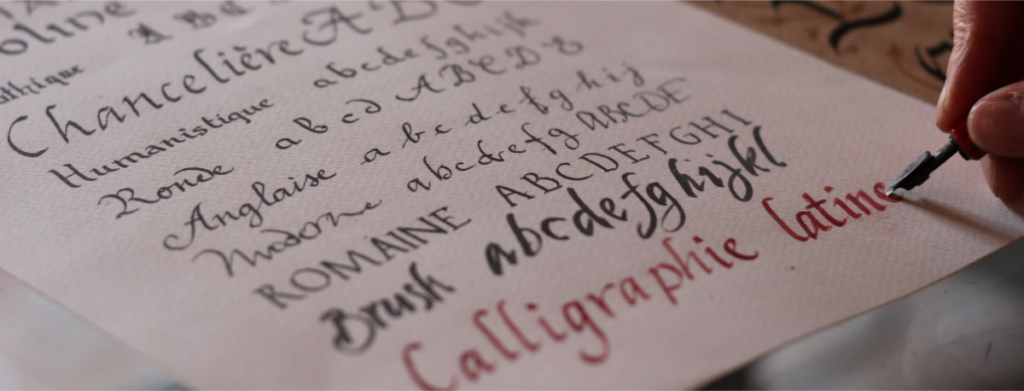 oline A B
thique
Chancelière A B C
Humanistique abcdefghijk
Ronde a b c d A B C D
Anglaise a b c d e f g h i j
Moderne abcdefg ABCDE
ROMAINE ABCDEFGHI
Brush abcdefghijkl
Calligraphie latine